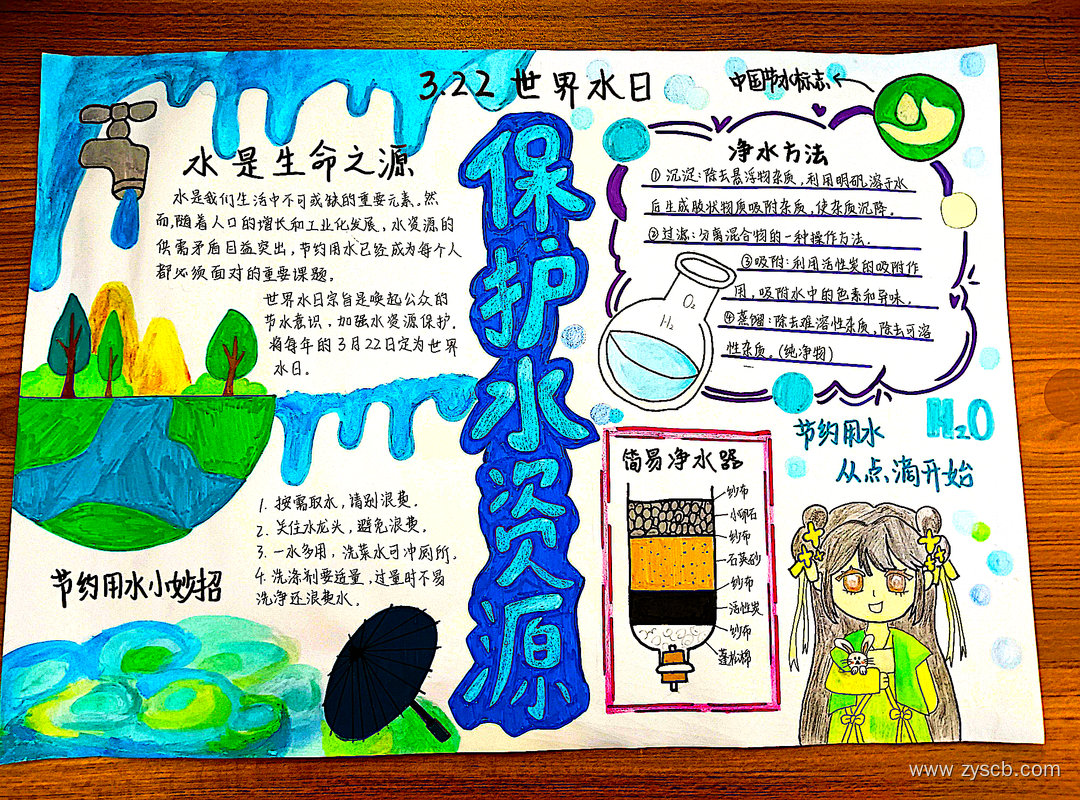 3.22 世界水日
中国节水标志
水是生命之源
水是我们生活中不可或缺的重要元素。然
而,随着人口的增长和工业化发展,水资源的
供需矛盾日益突出,节约用水已经成为每个人
都必须面对的重要课题。
世界水日宗旨是唤起公众的
节水意识,加强水资源保护。
将每年的3月22日定为世界
水日。
保护水资源
净水方法
①沉淀:除去悬浮物杂质,利用明矾溶于水
后生成胶状物质吸附杂质,使杂质沉降。
②过滤:分离混合物的一种操作方法.
③吸附:利用活性炭的吸附作
用,吸附水中的色素和异味.
④蒸馏:除去难溶性杂质,除去可溶
性杂质。(纯净物)
O₂
H₂
节约用水
H₂O
从点滴开始
1. 按需取水,请别浪费.
2. 关住水龙头,避免浪费.
3. 一水多用,洗菜水可冲厕所.
4. 洗涤剂要适量,过量时不易
洗净还浪费水.
节约用水小妙招
简易净水器
纱布
小卵石
纱布
石英砂
纱布
活性炭
纱布
蓬松棉
www.zyscb.com